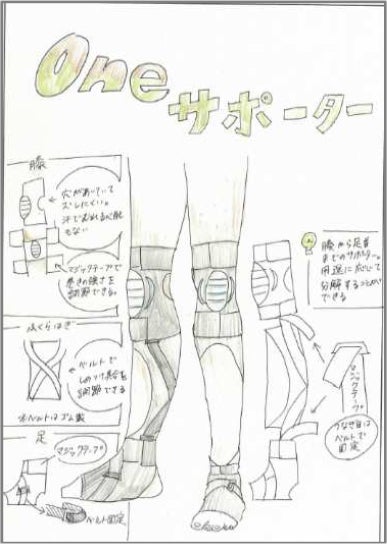 One
サポーター
膝
穴があいていて
ズレにくい。
汗でむれる心配
もない
マジックテープで
巻きの強さを
調節できる。
ふくらはぎ
ベルトで
しめつけ具合を
調節できる
※ベルトはゴム製
足
マジックテープ
ベルト固定
膝から足首
までのサポーター。
用途に応じて
分解することが
できる
マジックテープ
つなぎ目は
ベルトで
固定